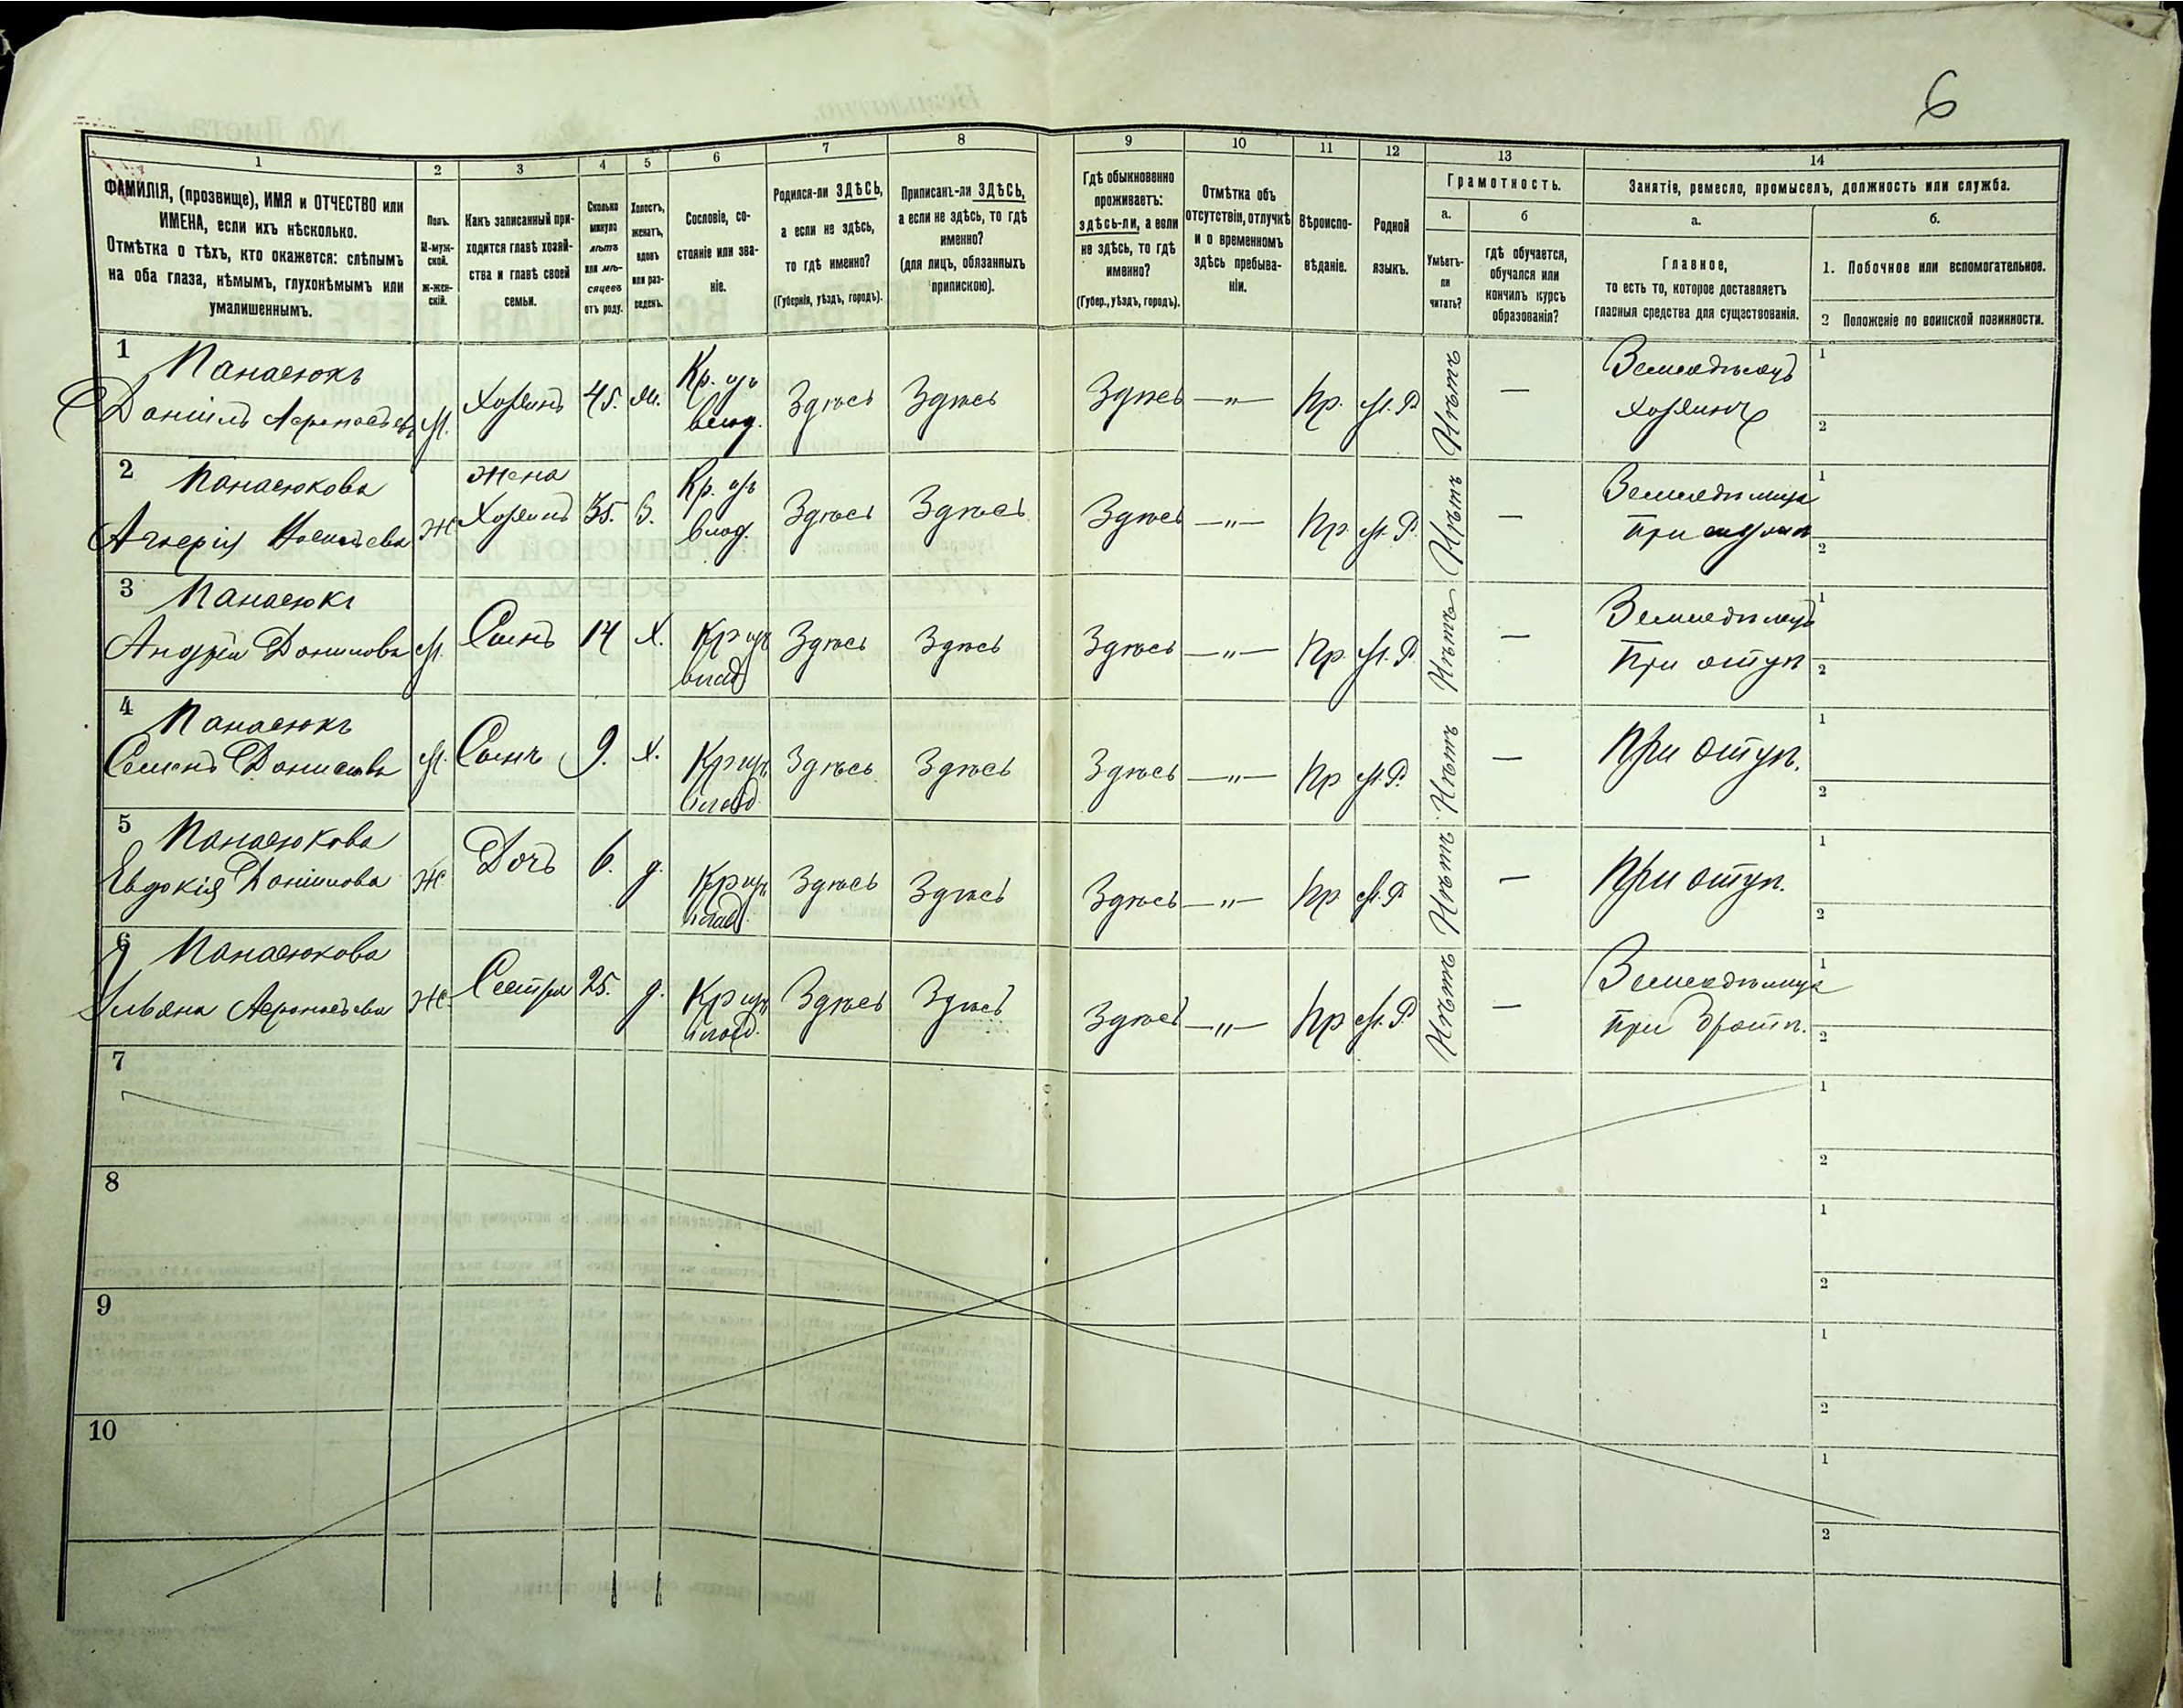 6
1 2 3 4 5 6 7 8 9 10 11 12 13 14
ФАМИЛІЯ, (прозвище), ИМЯ и ОТЧЕСТВО или
ИМЕНА, если ихъ нѣсколько.
Отмѣтка о тѣхъ, кто окажется: слѣпымъ
на оба глаза, нѣмымъ, глухонѣмымъ или
умалишеннымъ.
Полъ.
М-муж-
ской.
Ж-жен-
скій.
Какъ записанный при-
ходится главѣ хозяй-
ства и главѣ своей
семьи.
Сколько
минуло
лѣтъ
или мѣ-
сяцевъ
отъ роду.
Холостъ,
женатъ,
вдовъ
или раз-
веденъ.
Сословіе, со-
стояніе или зва-
ніе.
Родился-ли ЗДѢСЬ,
а если не здѣсь,
то гдѣ именно?
(Губернія, уѣздъ, городъ).
Приписанъ-ли ЗДѢСЬ,
а если не здѣсь, то гдѣ
именно?
(для лицъ, обязанныхъ
припискою).
Гдѣ обыкновенно
проживаетъ:
здѣсь-ли, а если
не здѣсь, то гдѣ
именно?
(Губер., уѣздъ, городъ).
Отмѣтка объ
отсутствіи, отлучкѣ
и о временномъ
здѣсь пребыва-
ніи.
Вѣроиспо-
вѣданіе.
Родной
языкъ.
Грамотность.
а.
Умѣетъ-
ли
читать?
б
гдѣ обучается,
обучался или
кончилъ курсъ
образованія?
Занятіе, ремесло, промыселъ, должность или служба.
а.
Главное,
то есть то, которое доставляетъ
главныя средства для существованія.
б.
1. Побочное или вспомогательное.
2 Положеніе по воинской повинности.
1 Панасюкъ
Даніилъ Афанасьевъ М. Хозяинъ 45. Кр. изъ
влад. Здѣсь Здѣсь Здѣсь —"— Пр. М. Р. Нѣтъ — Земледѣлецъ
хозяинъ 1
2
2 Панасюкова
Ж Жена
Хозяина 35. З. Кр. изъ
влад. Здѣсь Здѣсь Здѣсь —"— Пр М. Р. Нѣтъ — Земледѣлица
При 1
2
3 Панасюкъ
Андрей Данилова М. Сынъ 14 Х. Кр изъ
влад Здѣсь Здѣсь Здѣсь —"— Пр. М. Р. Нѣтъ — Земледѣлецъ
При отцѣ 1
2
4 Панасюкъ
Семенъ Данилова М. Сынъ 9. Х. Кр изъ
влад. Здѣсь Здѣсь Здѣсь —"— Пр М. Р. Нѣтъ — При отцѣ. 1
2
5 Панасюкова
Евдокія Даніилова Ж. Дочь 6. д. Кр изъ
влад. Здѣсь Здѣсь Здѣсь —"— Пр. М. Р Нѣтъ — При отцѣ. 1
2
6 Панасюкова
Ульяна Афанасьева Ж. Сестра 25. д. Кр изъ
влад. Здѣсь Здѣсь Здѣсь —"— Пр М. Р. Нѣтъ — Земледѣлица
при братѣ. 1
2
7 1
2
8 1
2
9 1
2
10 1
2